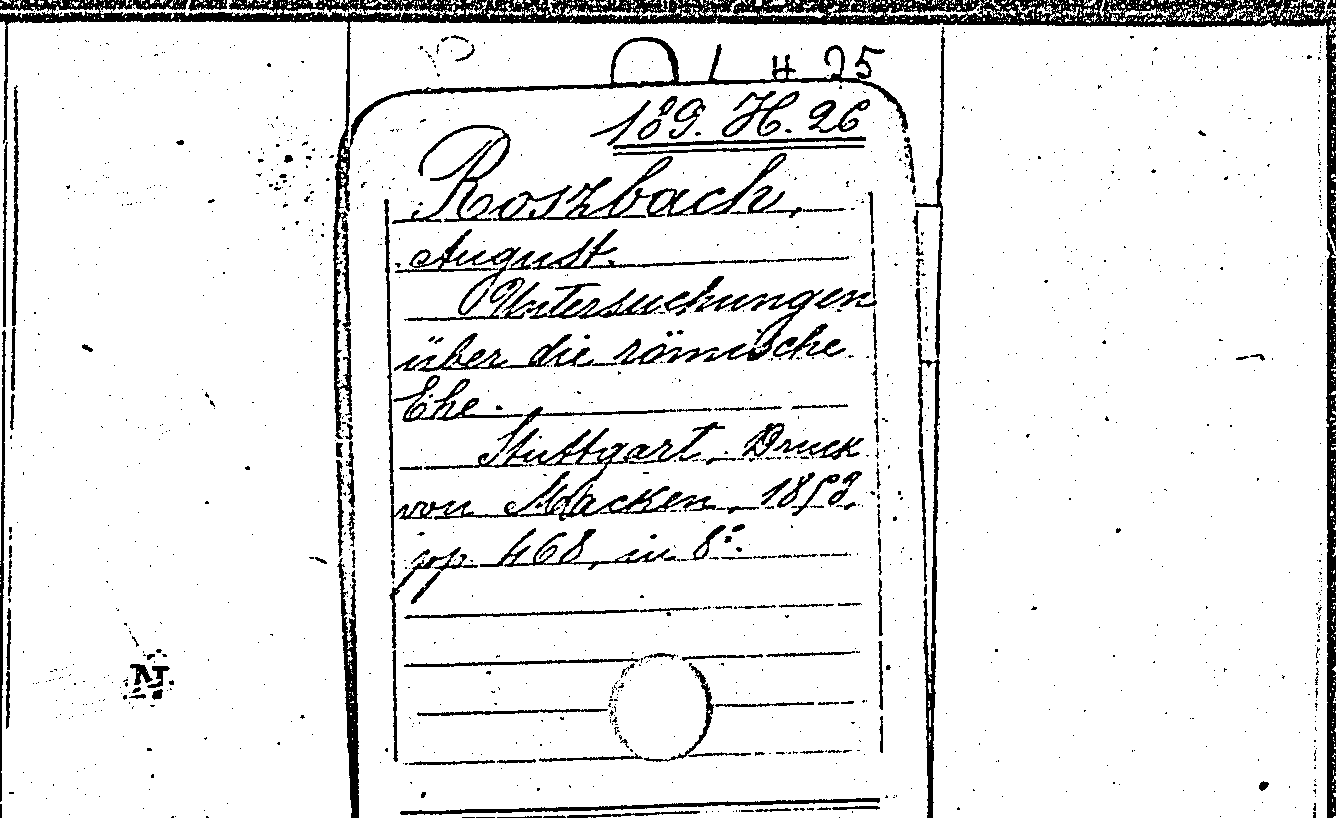 189. H. 26
Roszbach,
August.
Untersuchungen
über die römische
Ehe.
Stuttgart, Druck
von Mäcken, 1853.
pp. 468, in 8º.
N